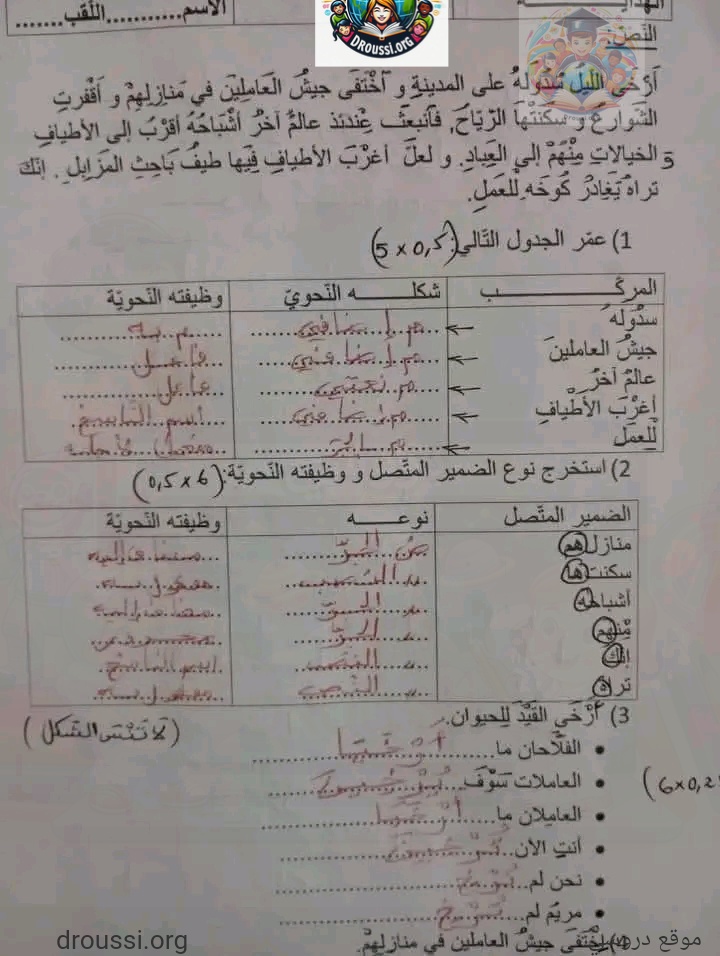 الهدايـــــة
الاسم...........اللقب.......
Droussi.org
النّص:
أَرْخَى اللّيلُ سُدُولَهُ على المدينةِ و اَخْتَفَى جيشُ العاملِيْنَ في مَنازِلِهِمْ و أَقْفرتِ
الشّوارعُ و سَكَنَتْهَا الرّيَاحُ, فَاَنبعَثَ عِنْدَئذ عالمٌ آخرُ أَشْباحُهُ أقرَبُ إلى الأطيافِ
وَ الخيالاتِ مِنْهُمْ إلى العِبادِ. و لعلَّ أغْرَبَ الأطيافِ فِيها طيفُ بَاحِثِ المزَابِلِ . إنّكَ
تراهُ يُغادرُ كُوخَه لِلْعملِ.
1) عمّر الجدول التّالي: (0,5 x 5)
المركّـــب شكلـــه النّحويّ وظيفته النّحويّة
سدُولَهُ ← م. إضافي م. به
جيشُ العاملينَ ← م. إضافي فاعل
عالمٌ آخرُ ← م. نعتي فاعل
أغْرَبَ الأطيافِ ← م. إضافي اسم النّاسخ
لِلْعملِ ← مفعول لأجله
2) استخرج نوع الضمير المتّصل و وظيفته النّحويّة: (0,5 x 6)
الضمير المتّصل نوعـــه وظيفته النّحويّة
منازلهم الجرّ مضاف إليه
سكنتها النّصب مفعول به
أشباحُه الجرّ مضاف إليه
مِنْهم الجرّ
إنّك النّصب اسم النّاسخ
تراهُ النّصب مفعول به
3) أَرْخَى القَيْدَ لِلحيوان. (لا تَنْسَ الشّكل)
• الفلّاحان ما.....أَرْخَيَا.....
• العاملات سَوْفَ...يُرْخِينَ..... (6x0,2
• العاملان ما.....أَرْخَيَا.....
• أنتِ الآن..تُرْخِينَ.....
• نحن لم....نُرْخِ.....
• مريَمُ لم....تُرْخِ.....
4) اِخْتَفَى جيشُ العاملين في منازلِهِمْ.
droussi.org
موقع دروسي